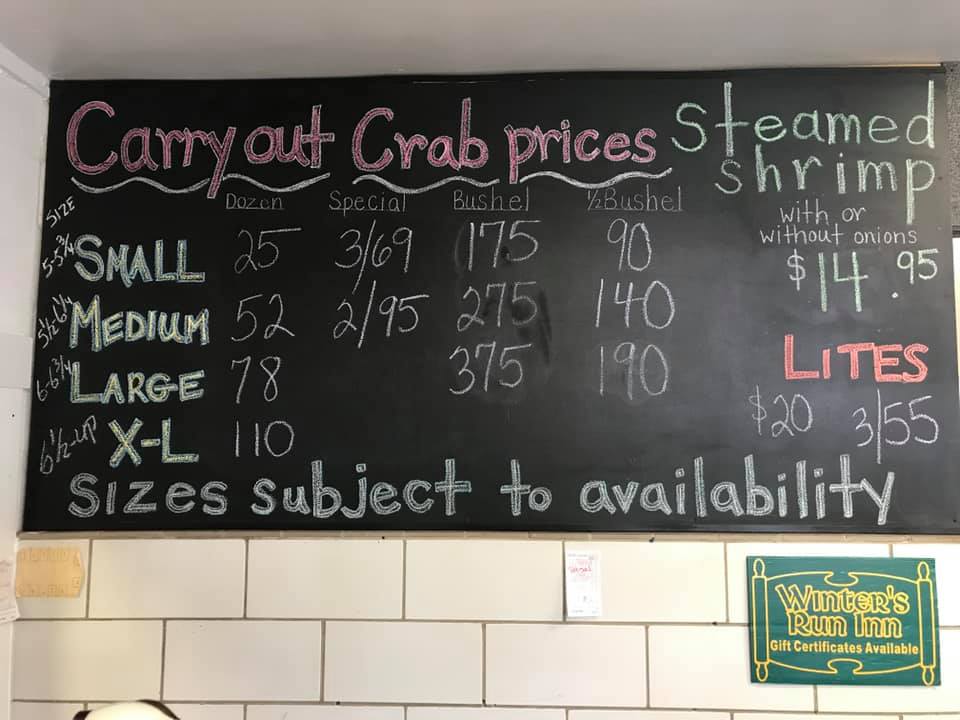 Carry out Crab prices
Steamed
shrimp
with or
without onions
$14.95
LITES
$20 3/55
SIZE Dozen Special Bushel ½Bushel
5-5¾ SMALL 25 3/69 175 90
5½-6¼ MEDIUM 52 2/95 275 140
6-6¾ LARGE 78 375 190
6½-up X-L 110
Sizes subject to availability
Winter's
Run Inn
Gift Certificates Available